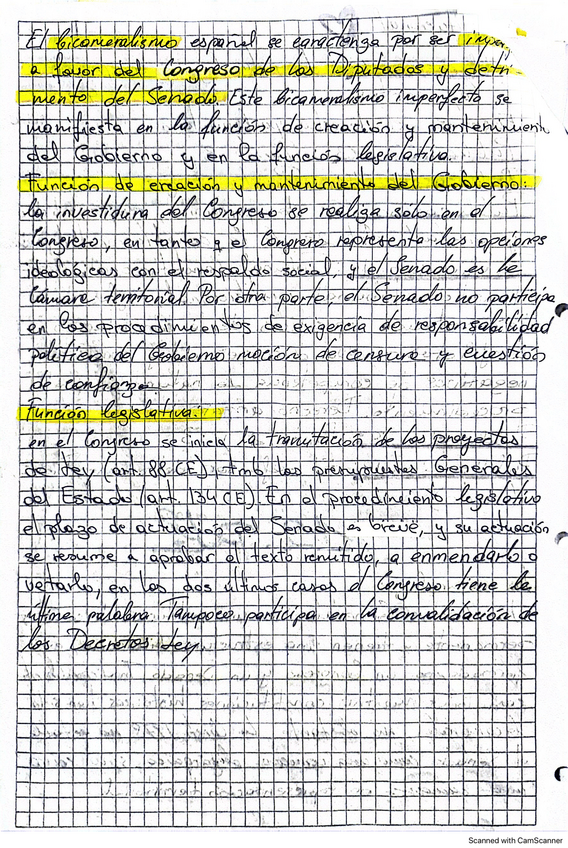 El bicameralismo español se caracteriza por ser
a favor del Congreso de los Diputados y detri-
mento del Senado. Este bicameralismo imperfecto se
manifiesta en la función de creación y mantenimient
del Gobierno y en la función legislativa.
Función de creación y mantenimiento del Gobierno:
la investidura del Congreso se realiza solo en el
Congreso, en tanto q el Congreso representa las opciones
ideológicas con el respaldo social, y el Senado es la
Cámara territorial. Por otra parte, el Senado no participa
en los procedimientos de exigencia de responsabilidad
política del Gobierno moción de censura y cuestión
de confianza
Función legislativa:
en el Congreso se inicia la tramitación de los proyectos
de Ley (art. 88 CE), tmb los presupuestos Generales
del Estado (art. 134 CE). En el procedimiento legislativo
el plazo de actuación del Senado es breve, y su actuación
se resume a aprobar el texto remitido, a enmendarlo o
vetarlo, en los dos últimos casos el Congreso tiene la
última palabra. Tampoco participa en la convalidación de
los Decretos Ley.
Scanned with CamScanner